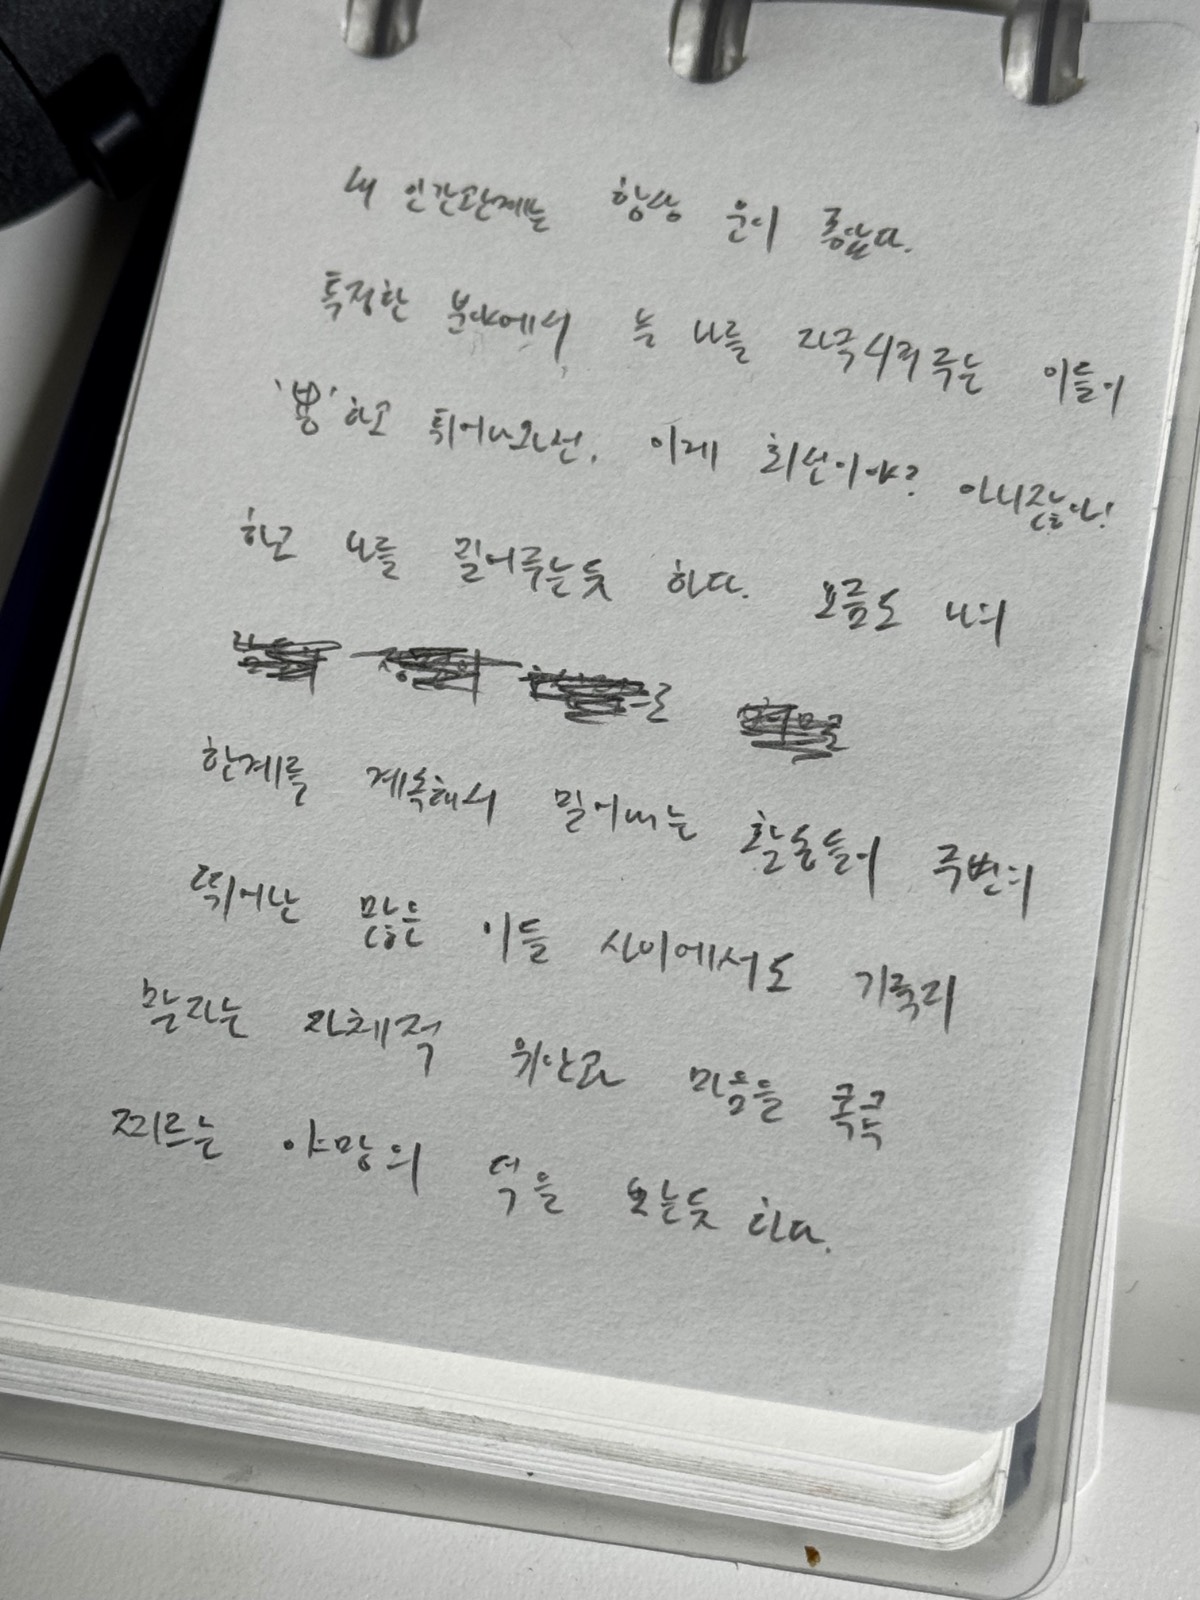 내 인간관계는 항상 운이 좋았다.
특정한 분야에서 는 나를 자극시켜주는 이들이
'뿅'하고 튀어나오선. 이게 최선이야? 아니잖아!
하고 나를 밀어주는듯 하다. 요즘도 나의
한계를 계속해서 밀어내는 활동들이 주변의
뛰어난 많은 이들 사이에서도 기죽지
않다는 자체적 위안과 마음을 쿡쿡
찌르는 야망의 덕을 보는듯 하다.